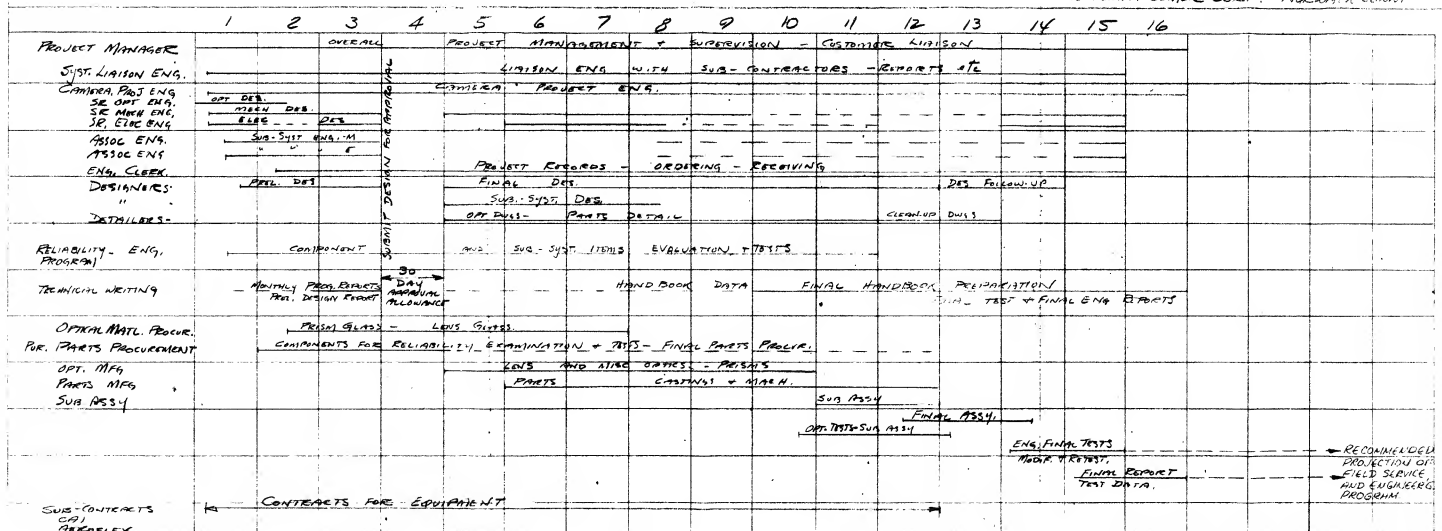 1 2 3 4 5 6 7 8 9 10 11 12 13 14 15 16
PROJECT MANAGER OVERALL PROJECT MANAGEMENT + SUPERVISION - CUSTOMER LIAISON
SYST. LIAISON ENG. LIAISON ENG WITH SUB-CONTRACTORS - REPORTS ETC
CAMERA, PROJ ENG CAMERA PROJECT ENG.
SR OPT ENG. OPT DES.
SR MECH ENG. MECH DES.
SR. ELEC ENG ELEC DES
ASSOC ENG. SUB-SYST ENG.-M
ASSOC ENG " " " E
ENG. CLERK. PROJECT RECORDS - ORDERING - RECEIVING
SUBMIT DESIGN FOR APPROVAL
DESIGNERS PREL. DES FINAL DES. DES FOLLOW-UP
" SUB-SYST. DES.
DETAILERS- OPT DWGS- PARTS DETAIL CLEAN-UP DWGS
RELIABILITY- ENG. COMPONENT AND SUB-SYST ITEMS EVALUATION + TESTS
PROGRAM
30
TECHNICIAL WRITING MONTHLY PROG. REPORTS DAY HAND BOOK DATA FINAL HANDBOOK PREPARIATION
DESIGN REPORT APPROVAL TEST + FINAL ENG REPORTS
ALLOWANCE
OPTICAL MATL. PROCUR. PRISM GLASS - LENS GLASS.
PUR. PARTS PROCUREMENT COMPONENTS FOR RELIABILITY EXAMINATION + TESTS- FINAL PARTS PROCUR.
OPT. MFG LENS AND MISC OPTICS. - PRISMS
PARTS MFG PARTS CASTINGS + MACH.
SUB ASSY SUB ASSY
FINAL ASSY.
OPT. TESTS-SUB ASSY
ENG. FINAL TESTS RECOMMENDED
MODIF. + RETEST. PROJECTION OF
FINAL REPORT FIELD SERVICE,
TEST DATA. AND ENGINEERG.
PROGRAM
SUB-CONTRACTS CONTRACTS FOR EQUIPMENT
CAI